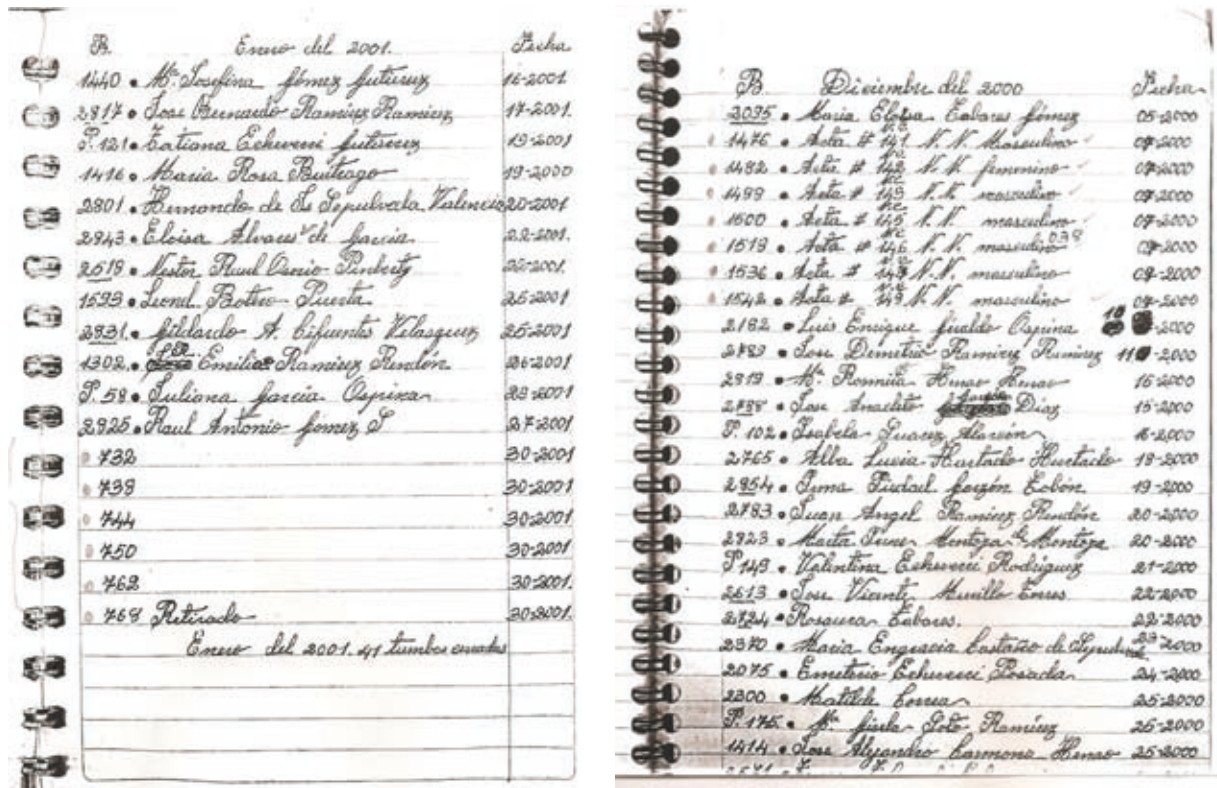 B. Enero del 2001. Fecha
1440 • Mª Josefina Gómez Gutierrez 16-2001
2817 • Jose Bernardo Ramirez Ramirez 17-2001.
P. 121 • Tatiana Echeverri Gutierrez 19-2001
1416 • Maria Rosa Buitrago 19-2000
2801 • Hernando de Js Sepulveda Valencia 20-2001
2943 • Eloisa Alvares de Garcia 22-2001.
2519 • Nestor Raul Osorio
1593 • Leonel Botero Puerta 25-2001
2931 • Gildardo A. Cifuentes Velasquez 25-2001
1302 • Emilia Ramirez Rendón 26-2001
P. 58 • Juliana Garcia Ospina 29-2001
2925 • Raul Antonio Gómez S 27-2001
• 732 30-2001
• 738 30-2001
• 744 30-2001
• 750 30-2001
• 762 30-2001.
• 768 Retirado 30-2001.
Enero del 2001. 41 tumbas
B Diciembre del 2000 Fecha
2095 • Maria Eloisa Tabares Gómez 05-2000
1476 • Acta # 141 N.N. Masculino 07-2000
1482 • Acta # 142 N.N femenino 07-2000
1499 • Acta # 143 N.N masculino 07-2000
1500 • Acta # 145 N.N. masculino 07-2000
1519 • Acta # 146 N.N. masculino 038 07-2000
1536 • Acta # 147 N.N. masculino 07-2000
1542 • Acta # 149 N.N. masculino 07-2000
2182 • Luis Enrique Giraldo Ospina 10 -2000
2789 • Jose Demetrio Ramirez Ramirez 11 -2000
2919 • Mª Romelia Henao Henao 15-2000
2788 • Jose Anacleto Díaz 15-2000
P. 102 • Isabela Suarez Alarcón 16-2000
2765 • Alba Lucia Hurtado Hurtado 18-2000
2954 • Irma Piedad Garzón Tobón 19-2000
2783 • Juan Angel Ramirez Rendón 20-2000
2923 • Marta Montoya de Montoya 20-2000
P 149 • Valentina Echeverri Rodriguez 21-2000
2613 • Jose Vicente Murillo Torres 22-2000
2724 • Rosaura Tabares. 22-2000
2370 • Maria Engracia Castaño de Sepulveda 23-2000
2075 • Emeterio Echeverri Posada 24-2000
2300 • Matilde Correa 25-2000
P. 175 • Mª Gisela Soto Ramirez 25-2000
1414 • Jose Alejandro Carmona Henao 25-2000